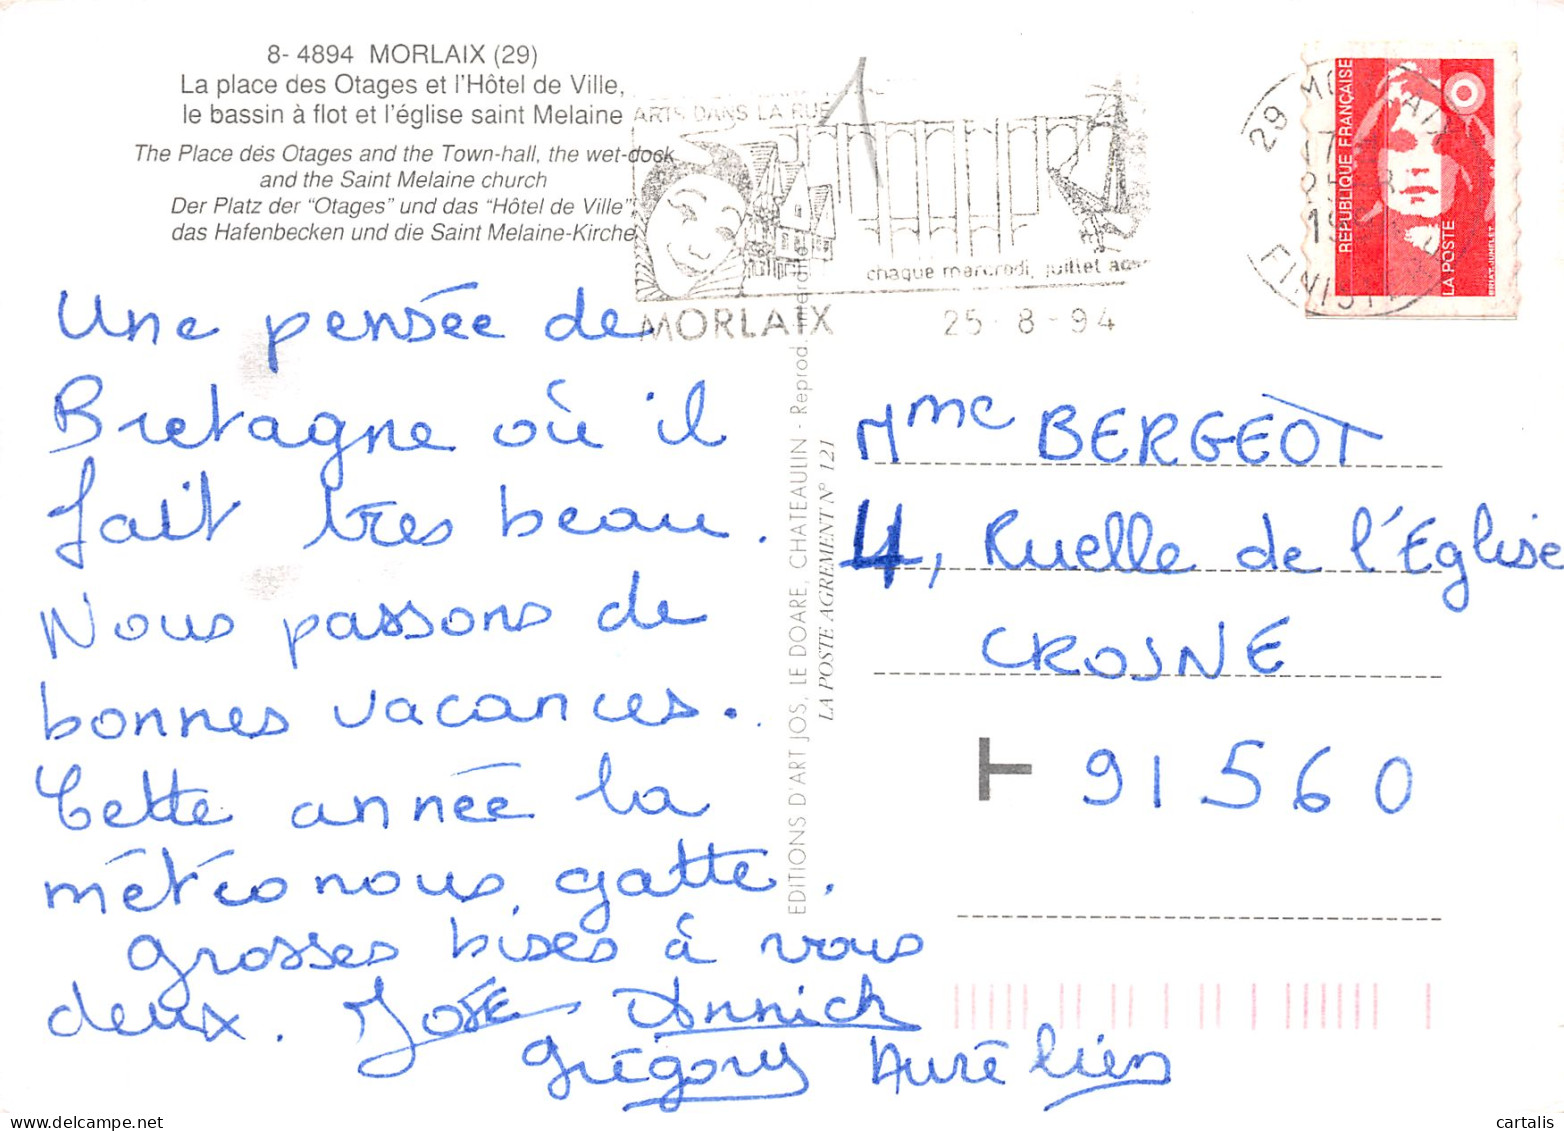 8- 4894 MORLAIX (29)
La place des Otages et l'Hôtel de Ville,
le bassin à flot et l'église saint Melaine
The Place des Otages and the Town-hall, the wet-dock
and the Saint Melaine church
Der Platz der "Otages" und das "Hôtel de Ville"
das Hafenbecken und die Saint Melaine-Kirche
ARTS DANS LA RUE
chaque mercredi, juillet
MORLAIX 25-8-94
29
FINIST
REPUBLIQUE FRANÇAISE
LA POSTE
Une pensée de
Bretagne où il
fait très beau.
Nous passons de
bonnes vacances.
Cette année la
météo nous gatte.
Grosses bises à vous
deux. José Annick
Grégory Aurélien
EDITIONS D'ART JOS, LE DOARE, CHATEAULIN - Reprod. interdite
LA POSTE AGREMENT N° 121
Mme BERGEOT
4, Ruelle de l'Eglise
CROSNE
T 91560
cartalis